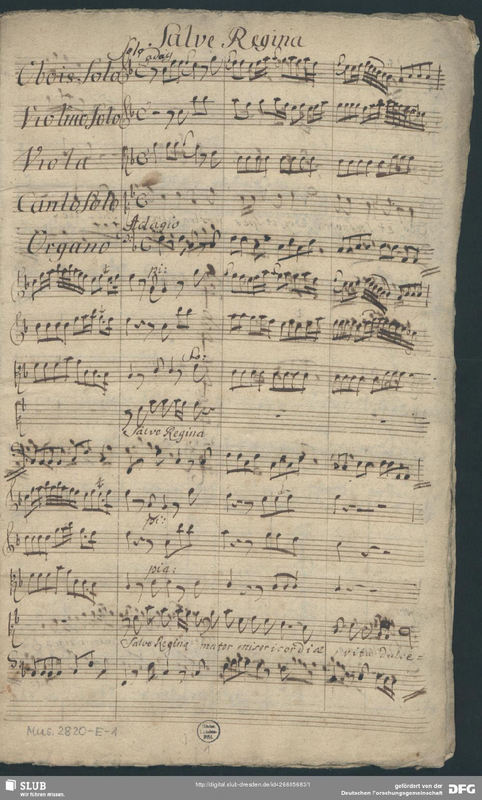 Salve Regina
Solo
Oboè Solo
Violino Solo
Viola
Canto Solo
Adagio
Organo
Salve Regina
pia:
Salve Regina mater misericordiæ vita Dulce-
Mus. 2820-E-1
1
SLUB
Wir führen Wissen.
http://digital.slub-dresden.de/id426685683/1
gefördert von der
Deutschen Forschungsgemeinschaft
DFG